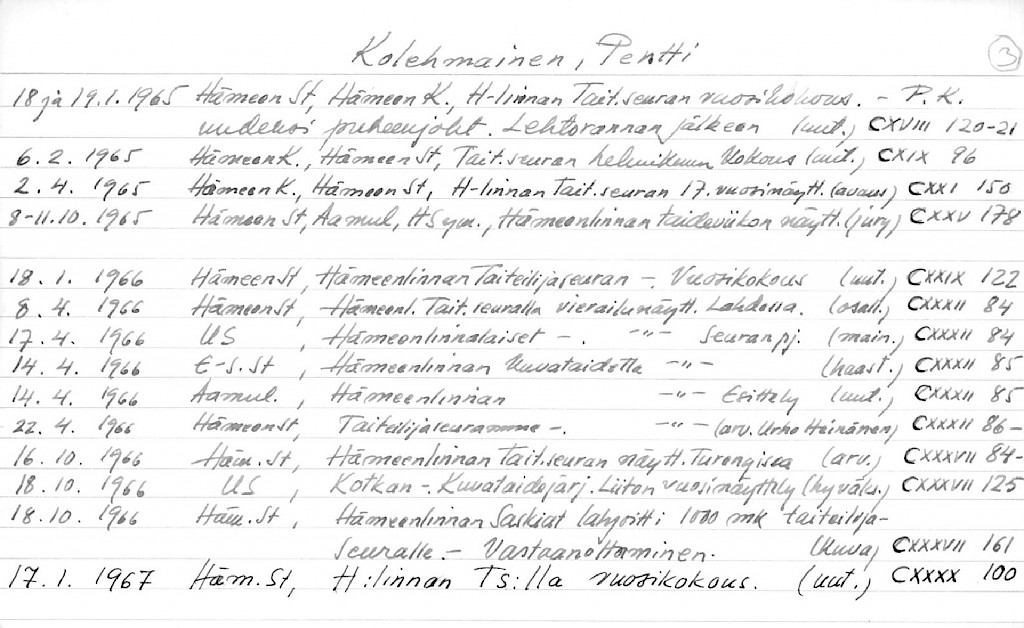 Kolehmainen, Pentti
3
18 ja 19.1.1965 Hämeen St, Hämeen K., H-linnan Tait.seuran vuosikokous. – P.K.
uudeksi puheenjoht. Lehtorannan jälkeen (uut.) CXVIII 120-21
6.2. 1965 Hämeen K., Hämeen St, Tait.seuran helmikuun kokous (uut.) CXIX 96
2.4. 1965 Hämeen K., Hämeen St, H-linnan Tait.seuran 17. vuosinäytt. (avaus) CXXI 150
8-11.10. 1965 Hämeen St, Aamul., HSym., Hämeenlinnan taideviikon näytt. (jury) CXXV 178
18.1. 1966 Hämeen St, Hämeenlinnan Taiteilijaseuran –. Vuosikokous (uut.) CXXIX 122
8.4. 1966 Hämeen St, Hämeenl. Tait.seuralla vierailunäytt. Lahdessa. (osall.) CXXXII 84
17.4. 1966 US , Hämeenlinnalaiset –. –"– Seuran pj. (main.) CXXXII 84
14.4. 1966 E-S. St , Hämeenlinnan kuvataidetta –"– (haast.) CXXXII 85
14.4. 1966 Aamul. , Hämeenlinnan –"– Esittely (uut.) CXXXII 85
22.4. 1966 Hämeen St, Taiteilijaseuramme –. –"– (arv. Urho Heinänen) CXXXII 86–
16.10. 1966 Häm. St, Hämeenlinnan Tait.seuran näytt. Turengissa (arv.) CXXXVII 84–
18.10. 1966 US , Kotkan –. Kuvataidejärj. Liiton vuosinäyttely (hyväks.) CXXXVII 125
18.10. 1966 Häm. St, Hämeenlinnan Saskiat lahjoitti 1000 mk taiteilija-
seuralle. – Vastaanottaminen. (kuva) CXXXVII 161
17.1. 1967 Häm. St, H:linnan Ts:lla vuosikokous. (uut.) CXXXX 100